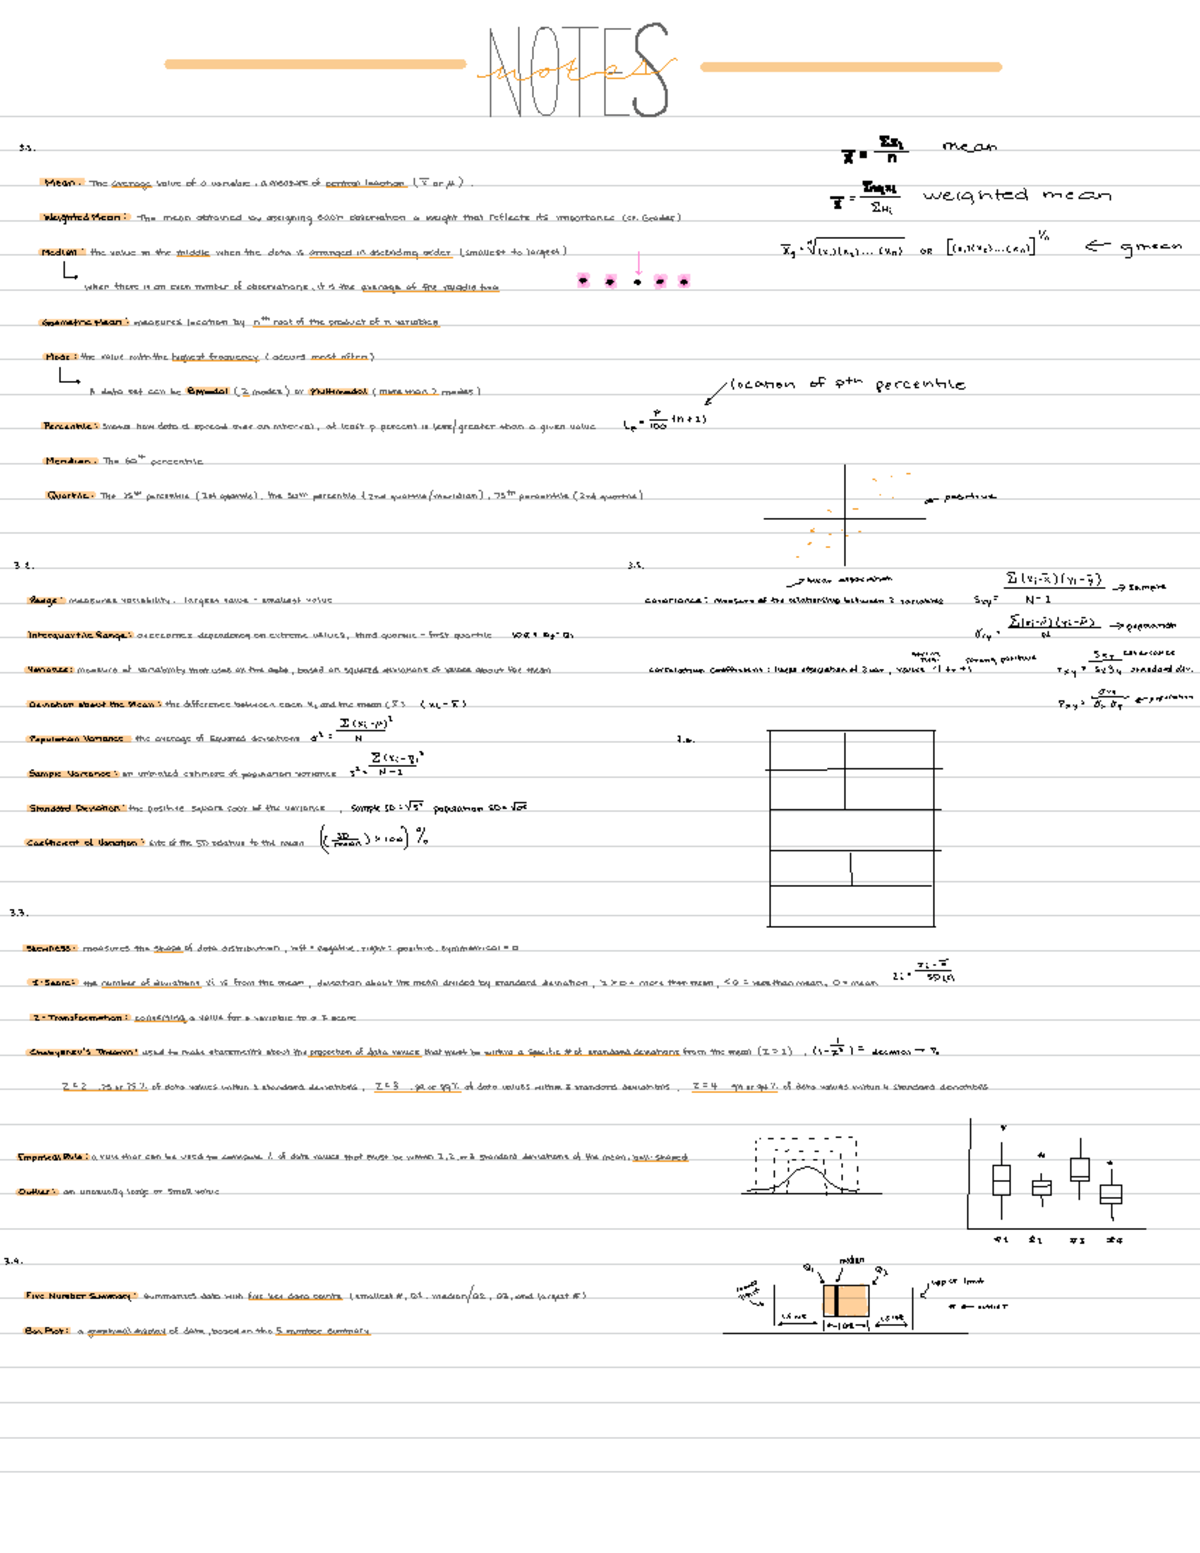 NOTES
notes
3.1.
x̄ = Σxi / n mean
Mean: The average value of a variable, a measure of central location (x̄ or μ).
x̄ = Σwixi / Σwi weighted mean
Weighted Mean: The mean obtained by assigning each observation a weight that reflects its importance (ex. Grades)
Median: the value in the middle when the data is arranged in ascending order (smallest to largest)
x̄g = ⁿ√(x1)(x2)...(xn) OR [(x1)(x2)...(xn)]^1/n ← gmean
when there is an even number of observations, it's the average of the middle two
Geometric Mean: measures location by nth root of the product of n variables
Mode: the value with the highest frequency (occurs most often)
A data set can be Bimodal (2 modes) or Multimodal (more than 2 modes)
location of pth percentile
Percentile: Shows how data is spread over an interval, at least p percent is less/greater than a given value
Lp = P/100 (n+1)
Meridian: The 50th percentile
Quartile: The 25th percentile (1st quartile), the 50th percentile (2nd quartile/meridian), 75th percentile (2nd quartile)
← positive
3.2.
Range: measures variability, largest value - smallest value
Interquartile Range: overcomes dependency on extreme values, third quartile - first quartile IQR = Q3-Q1
Variance: measure of variability that uses all the data, based on squared deviations of values about the mean
Deviation about the Mean: the difference between each xi and the mean (x̄) (xi - x̄)
Population Variance: the average of squared deviations σ² = Σ(xi-μ)² / N
Sample Variance: an unbiased estimate of population variance s² = Σ(xi-x̄)² / N-1
Standard Deviation: the positive square root of the variance, sample SD = √s² population SD = √σ²
Coefficient of Variation: size of the SD relative to the mean ((SD/mean) × 100) %
3.5.
linear association
covariance: measure of the relationship between 2 variables
Sxy = Σ(xi-x̄)(yi-ȳ) / N-1 → sample
σxy = Σ(xi-μ)(yi-μ) / N → population
correlation coefficient: linear association of 2 var, values -1 to +1
strong positive
rxy = Sxy / SxSy covariance standard dev.
Pxy = σxy / σx σy ← population
3.6.
3.3.
Skewness: measures the shape of data distribution, left = negative, right = positive, symmetrical = 0
Z-Score: the number of deviations xi is from the mean, deviation about the mean divided by standard deviation, z > 0 = more than mean, < 0 = less than mean, 0 = mean
zi = xi - x̄ /
Z-Transformation: converting a value for a variable to a z score
Chebyshev's Theorem: used to make statements about the proportion of data values that must be within a specific # of standard deviations from the mean (z > 1), (1 - 1/z²) = decimal → %
Z = 2 .75 or 75% of data values within 2 standard deviations, Z = 3 .89 or 89% of data values within 3 standard deviations, Z = 4 .94 or 94% of data values within 4 standard deviations
Empirical Rule: a rule that can be used to compute % of data values that must be within 1, 2, or 3 standard deviations of the mean, bell-shaped
Outlier: an unusually large or small value
x1 x2 x3 x4
3.4.
Q1 median Q3
lower limit upper limit
Five Number Summary: summarizes data with five key data points (smallest #, Q1, median/Q2, Q3, and largest #)
* ← outlier
1.5 IQR IQR 1.5 IQR
Box Plot: a graphical display of data, based on the 5 number summary